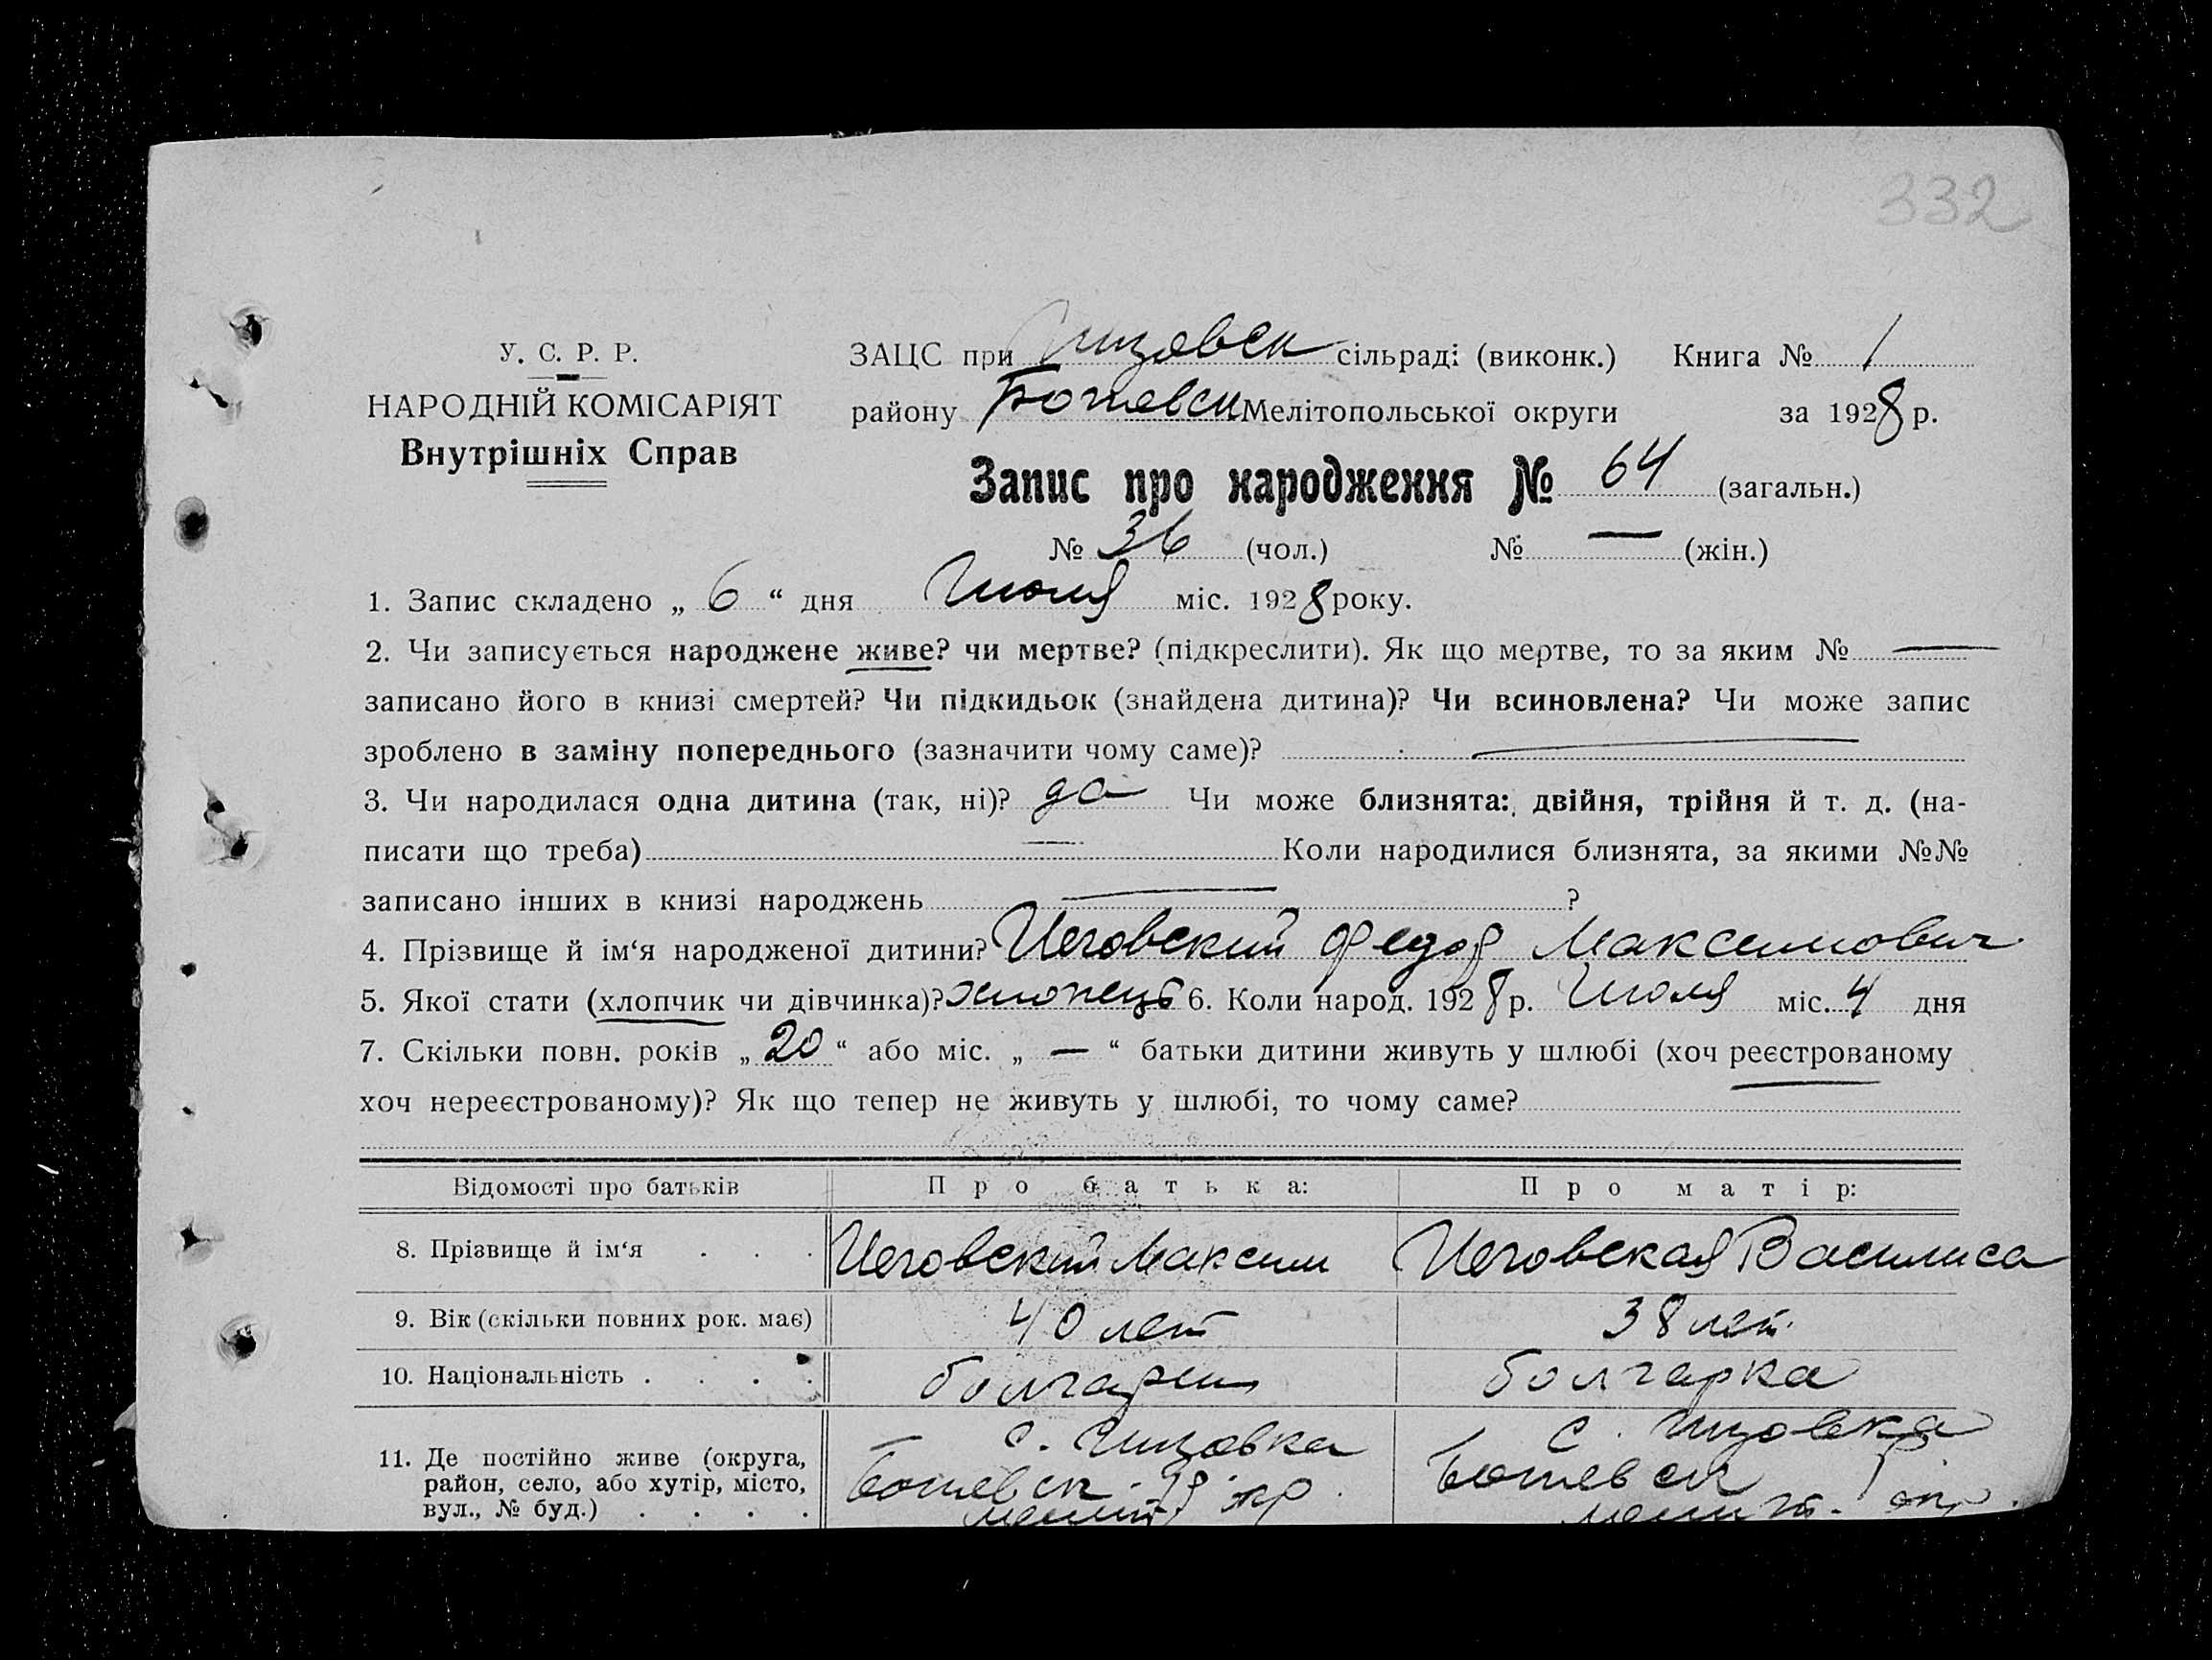 332
У. С. Р. Р.
НАРОДНІЙ КОМІСАРІЯТ
Внутрішніх Справ
ЗАЦС при Гизовск сільраді (виконк.) Книга № 1
району Ботиевск Мелітопольської округи за 1928 р.
Запис про народження № 64 (загальн.)
№ 36 (чол.) № — (жін.)
1. Запис складено „ 6 “ дня Июля міс. 1928 року.
2. Чи записується народжене живе? чи мертве? (підкреслити). Як що мертве, то за яким № —
записано його в книзі смертей? Чи підкидьок (знайдена дитина)? Чи всиновлена? Чи може запис
зроблено в заміну попереднього (зазначити чому саме)? —
3. Чи народилася одна дитина (так, ні)? да Чи може близнята: двійня, трійня й т. д. (на-
писати що треба) — Коли народилися близнята, за якими №№
записано інших в книзі народжень — ?
4. Прізвище й ім‘я народженої дитини? Чеговский Федор Максимович
5. Якої стати (хлопчик чи дівчинка)? хлопець 6. Коли народ. 1928 р. Июля міс. 4 дня
7. Скільки повн. років „ 20 “ або міс. „ — “ батьки дитини живуть у шлюбі (хоч реєстрованому
хоч нереєстрованому)? Як що тепер не живуть у шлюбі, то чому саме?
Відомості про батьків Про батька: Про матір:
8. Прізвище й ім‘я . . . Чеговский Максим Чеговская Василиса
9. Вік (скільки повних рок. має) 40 лет 38 лет.
10. Національність . . . . болгарин болгарка
11. Де постійно живе (округа,
район, село, або хутір, місто,
вул., № буд.) . . . .
с. Гизовка
Ботиевск. р.
Мелит. окр.
с. Гизовка
Ботиевск р.
Мелит. окр.